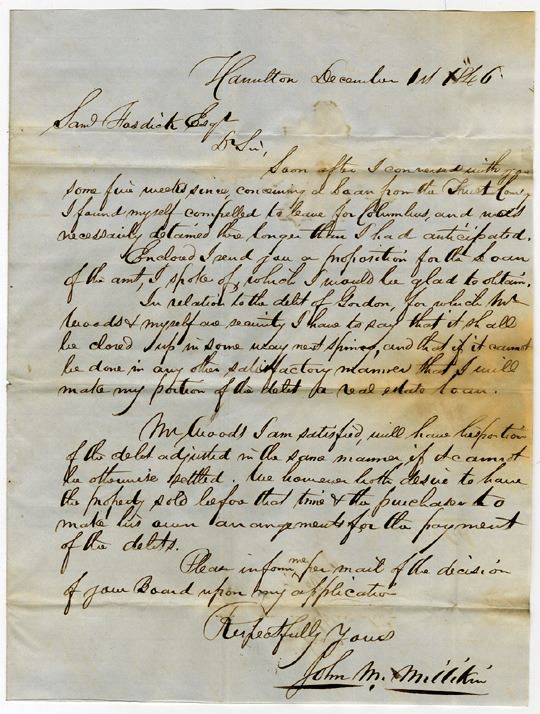 Hamilton December 1st 1846
Saml Fosdick Esqr
Dr Sir,
Soon after I conversed with you
some five weeks since, concerning a Loan from the Trust Comy
I found myself compelled to leave for Columbus, and was
necessarily detained there longer than I had anticipated.
Enclosed I send you a proposition for the Loan
of the amt, I spoke of, which I would be glad to obtain.
In relation to the debt of Gordon, for which Mr
Woods & myself are security I have to say that it shall
be closed up in some way next spring, and that if it cannot
be done in any other satisfactory manner that I will
make my portion of the debt a real estate loan.
Mr Woods I am satisfied, will have his portion
of the debt adjusted in the same manner if it cannot
be otherwise settled. We however both desire to have
the property sold before that time & the purchaser to
make his own arrangements for the payment
of the debts.
Please inform me per mail of the decision
of your Board upon my application
Respectfully Yours
John M. Millikin